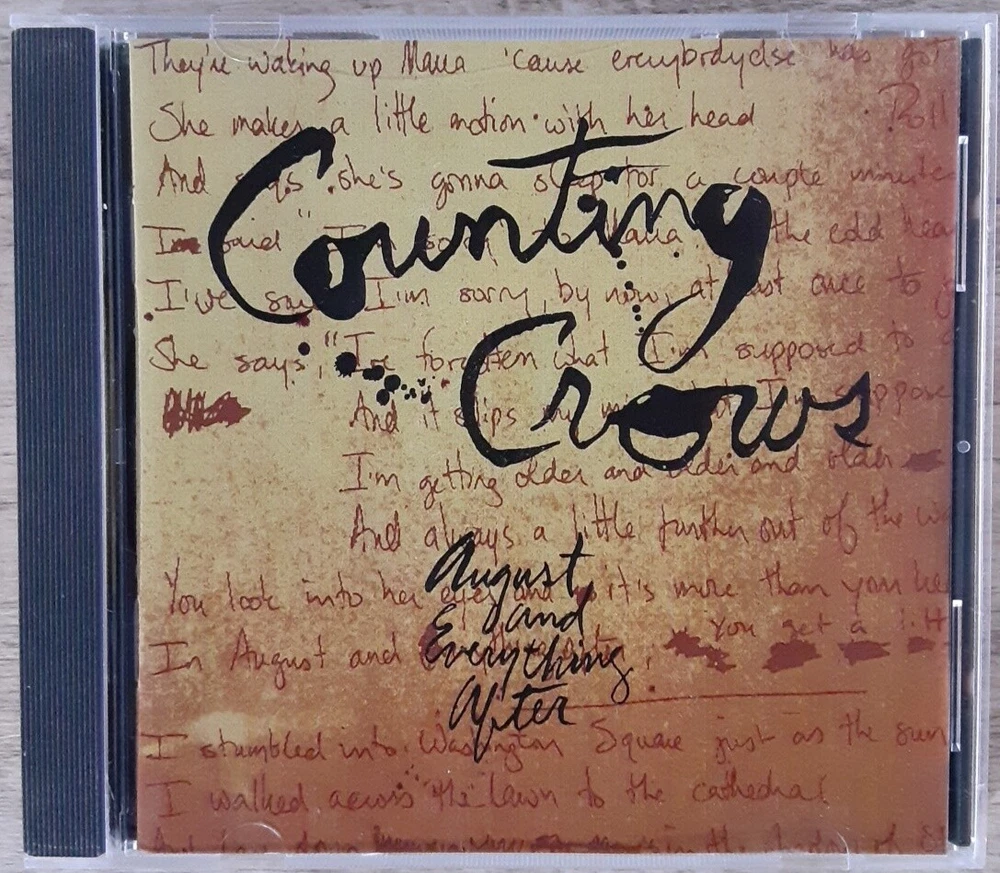 They're waking up Maria 'cause everybodyelse has got
She makes a little motion with her head
Roll
And says she's gonna sleep for a couple minute
I'm said "I'm sorry to Maria the cold hea
I've said I'm sorry by now, at last once to
She says, "I've forgotten what I'm supposed to
And it slips my mind what I'm suppose
I'm getting older and older and older
And always a little further out of the
You look into her eyes and it's more than your he
In August and Everything after, You get a litt
I stumbled into Washington Square just as the sun
I walked across the lawn to the cathedral
in the shadow of St
Counting
Crows
August
and
Everything
After